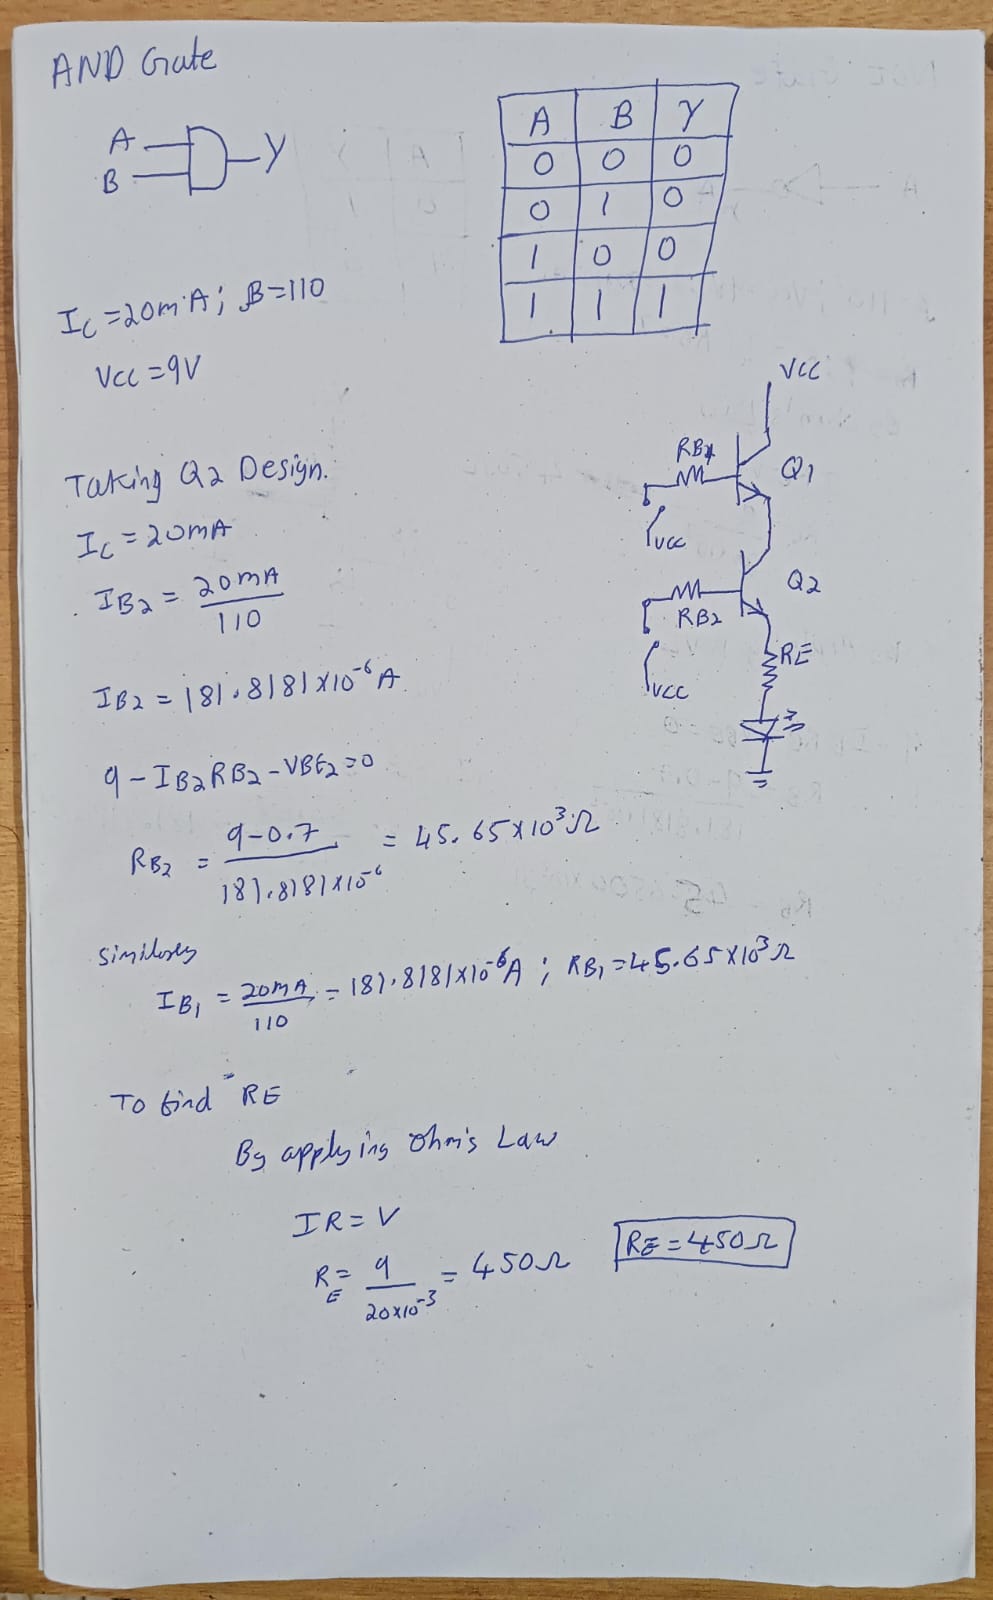 AND Gate
A
B
Y
A B Y
0 0 0
0 1 0
1 0 0
1 1 1
IC = 20mA; β=110
VCC = 9V
VCC
RB1
Q1
VCC
Q2
RB2
VCC
RE
Taking Q2 Design.
IC = 20mA
IB2 = 20mA / 110
IB2 = 181.8181 x10⁻⁶ A
9 - IB2RB2 - VBE2 = 0
RB2 = 9-0.7 / 181.8181 x10⁻⁶ = 45.65 x 10³ Ω
similarly
IB1 = 20mA / 110 = 181.8181x10⁻⁶A ; RB1 = 45.65 x10³ Ω
To find RE
By applying ohm's Law
IR = V
RE = 9 / 20x10⁻³ = 450 Ω
RE = 450 Ω